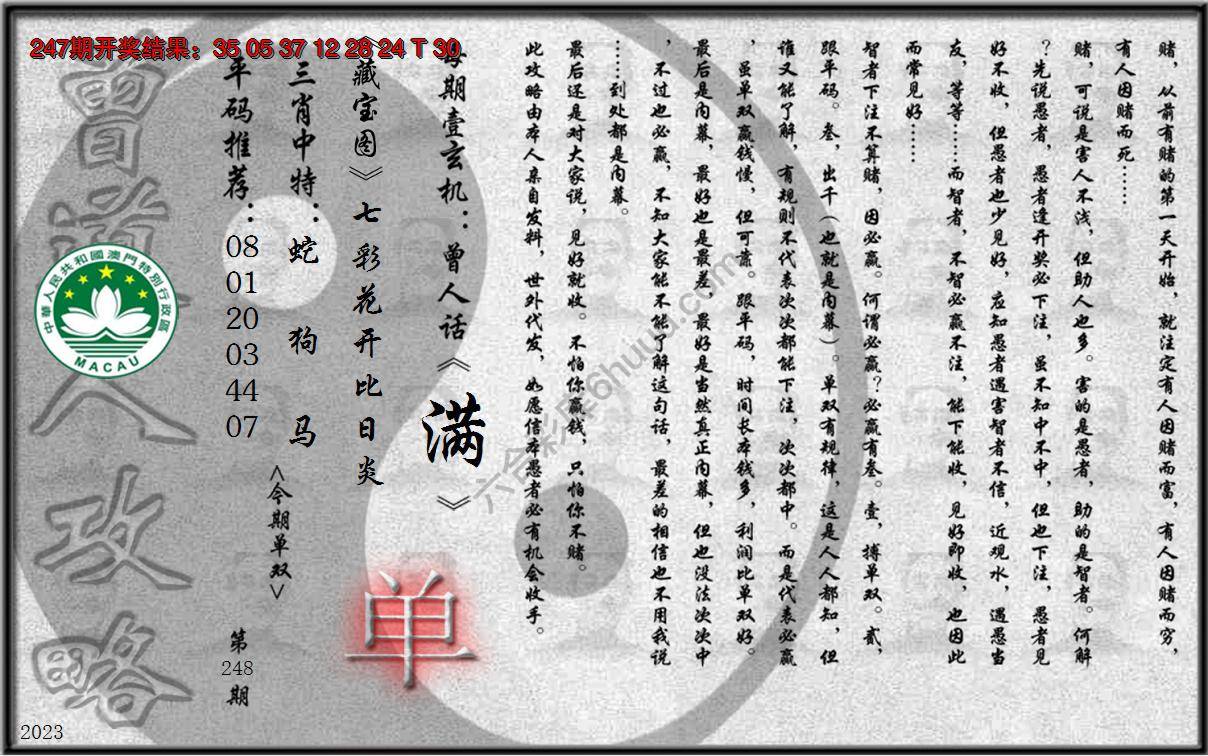 247期开奖结果：35 05 37 12 28 24 T 30
赌，从前有赌的第一天开始，就注定有人因赌而富，有人因赌而穷，
有人因赌而死……
赌，可说是害人不浅，但助人也多。害的是愚者，助的是智者。何解
？先说愚者，愚者逢开奖必下注，虽不知中不中，但也下注，愚者见
好不收，但愚者也少见好，应知愚者遇害智者不信，近观水，遇愚当
友，等等……而智者，不智必赢不注，能下能收，见好即收，也因此
而常见好……
智者下注不算赌，因必赢。何谓必赢？必赢有叁。壹，搏单双。贰，
跟平码。叁，出千（也就是内幕）。单双有规律，这是人人都知，但
谁又能了解，有规则不代表次次都能下注，次次都中。而是代表必赢
，虽单双赢钱慢，但可靠。跟平码，时间长本钱多，利润比单双好。
最后是内幕，最好也是最差。最好是当然真正内幕，但也没法次次中
，不过也必赢，不知大家能不能了解这句话，最差的相信也不用我说
……到处都是内幕。
最后还是对大家说，见好就收。不怕你赢钱，只怕你不赌。
此攻略由本人亲自发料，世外代发，如愿信本愚者必有机会收手。
每期壹玄机：曾人话《满》
《藏宝图》七彩花开比日炎
三肖中特：蛇 狗 马
<今期单双>
单
平码推荐：08 01 20 03 44 07
第248期
曾道人攻略
中華人民共和國澳門特別行政區
MACAU
六合彩库6huu.com
2023